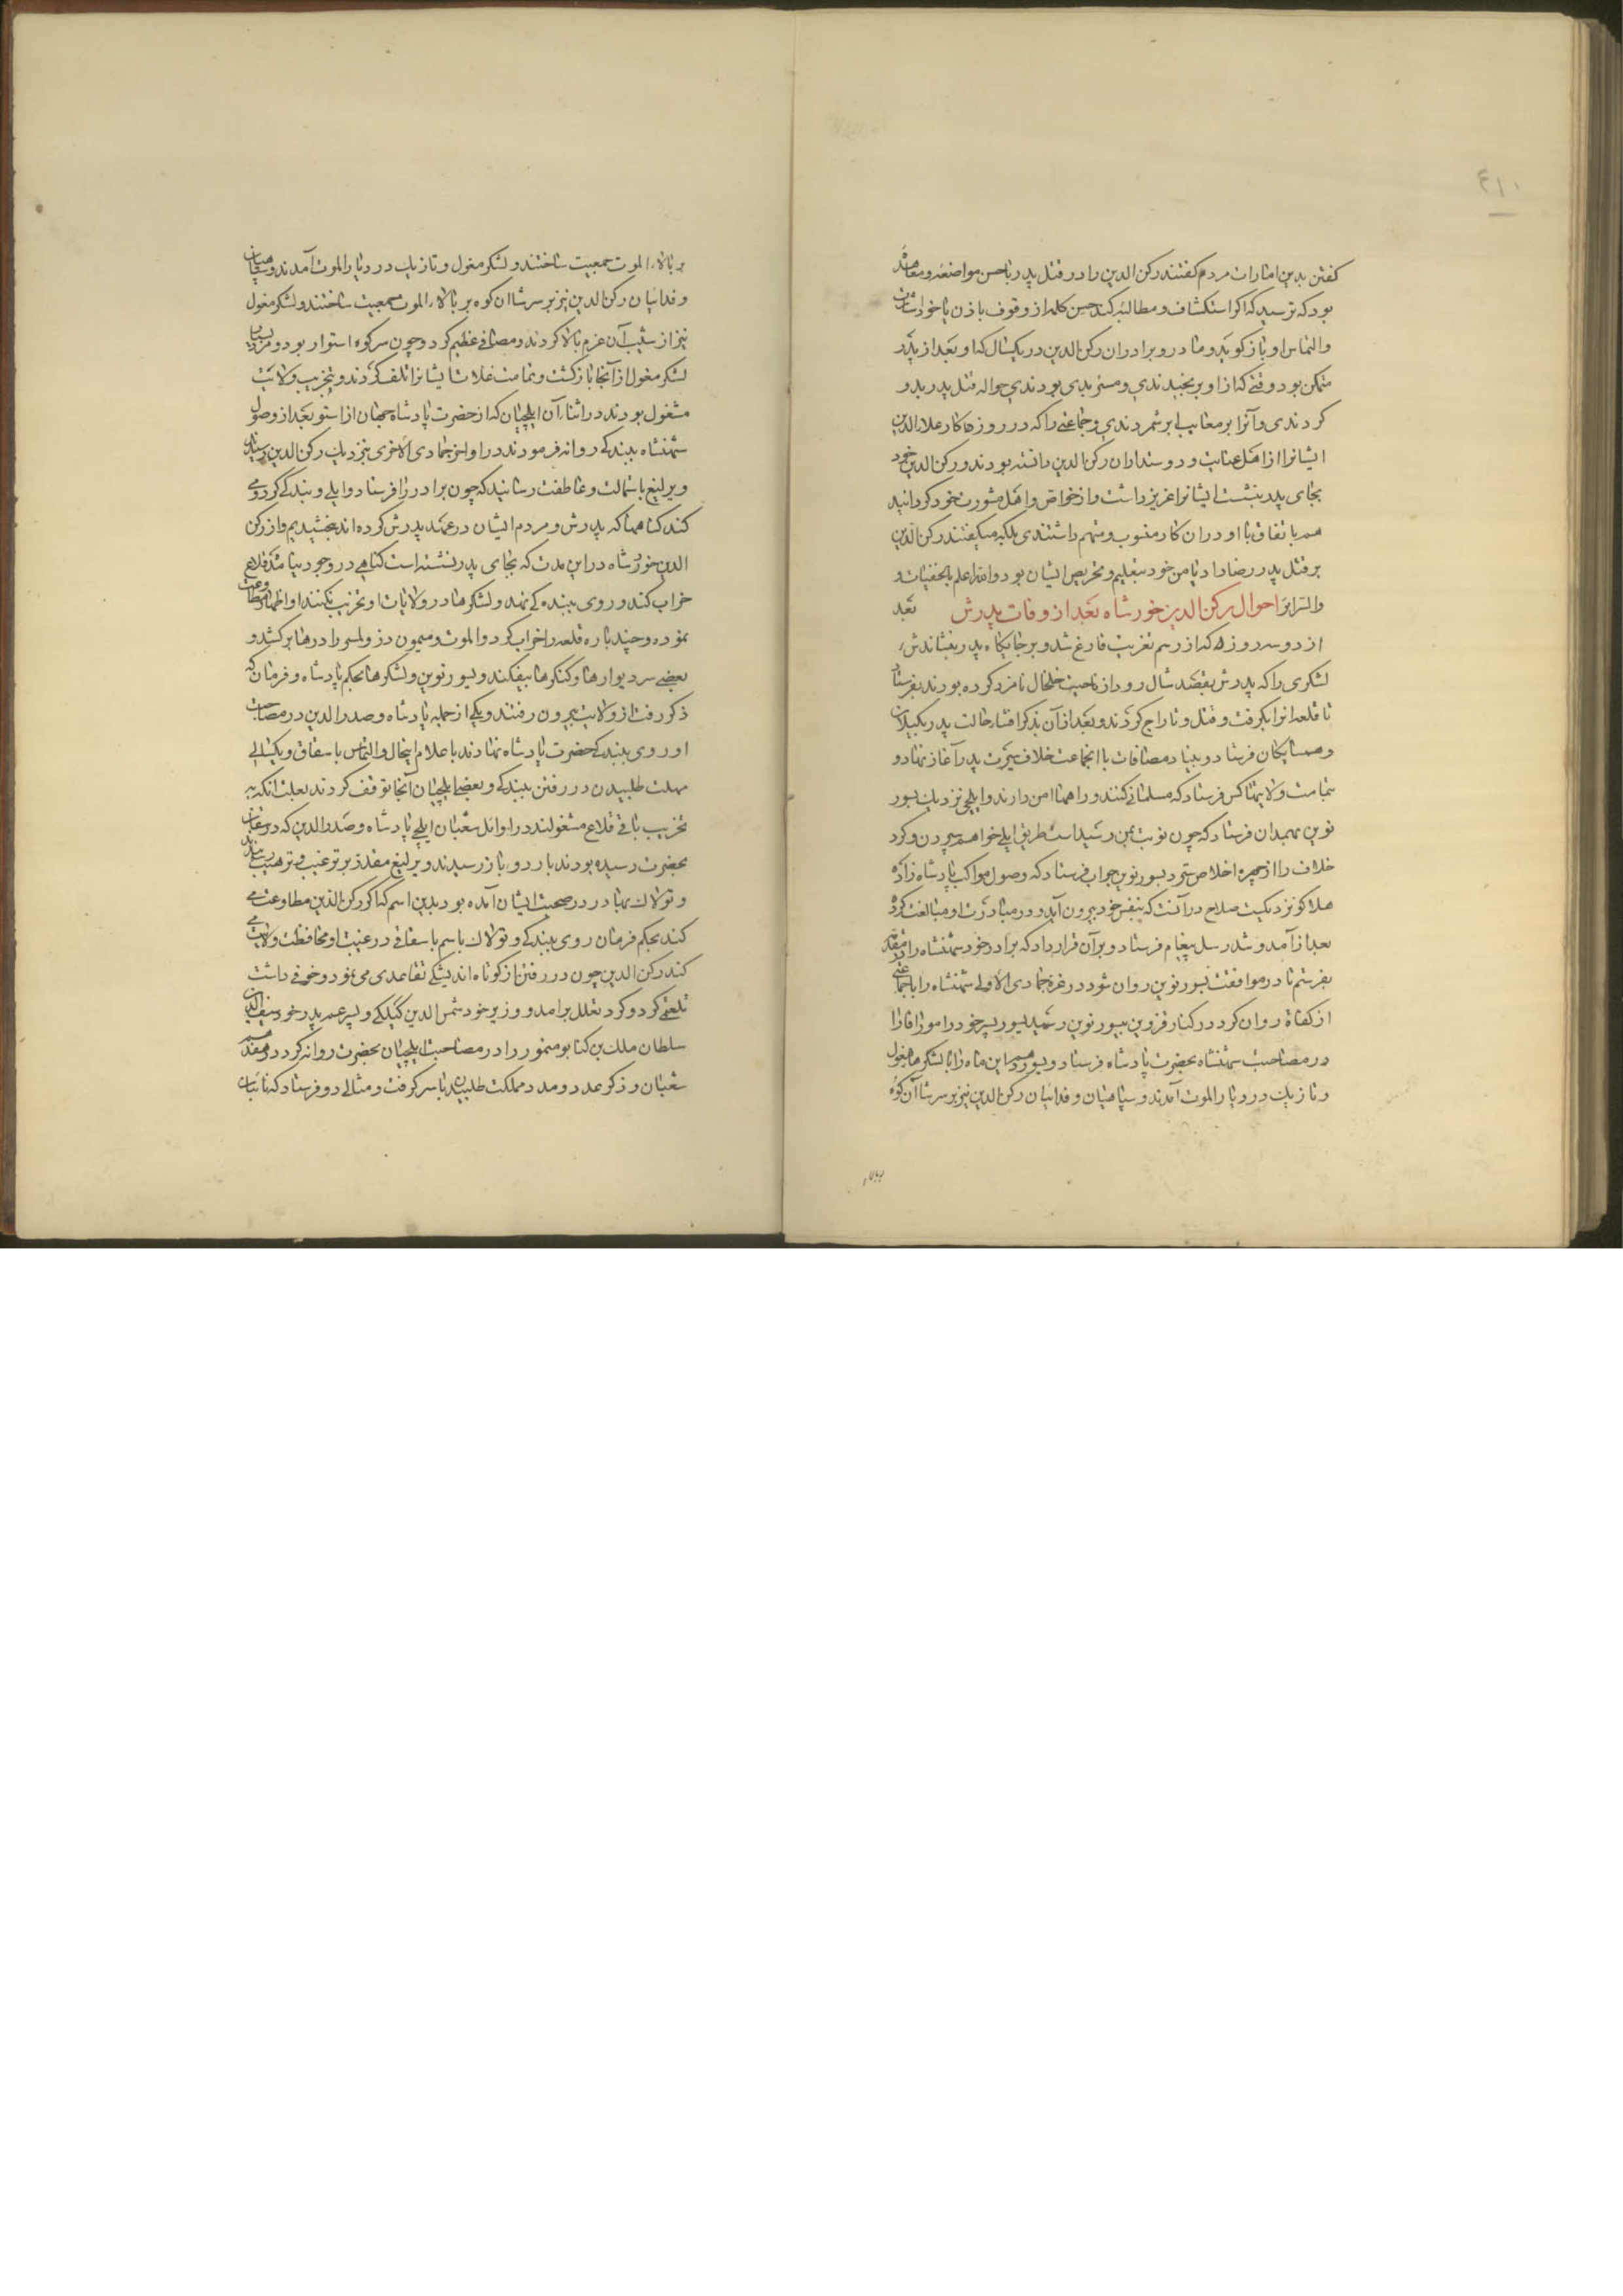 ۴۱۰
کفتن بدین امارات مردم کفتند رکن الدین را در قتل پدر با حسن مواضعه و معاهده
بود که ترسید که اکر استکشاف و مطالبه کند حسن کلمه از وقوف باذن یا خواستاری
والتماس او باز کوید و مادر و برادران رکن الدین در یکسال که او بعد از پدر
متمکن بود وقتی که از او برنجیدندی و مستزیدی بودندی حواله قتل پدر بدو
کردندی و آنرا بر معایب او برشمردندی و جماعتی را که در روزها کار علاء الدین
ایشانرا از اهل عنایت و دوستداران رکن الدین دانسته بودند و رکن الدین خود
بجای پدر بنشست ایشانرا عزیز داشت و از خواص و اهل مشورت خود کردانید
هم باتفاق با او در آن کار منسوب و متهم داشتندی بلکه میکفتند رکن الدین
بر قتل پدر رضا داد یا من خود بتعلیم و تحریص ایشان بود والله اعلم بالخفیات و
والسرایر احوال رکن الدین خورشاه بعد از وفات پدرش بعد
از دو سه روز که از رسم تعزیت فارغ شد و بر جایکاه پدر بنشاندش
لشکری را که پدرش بقصد شال رود از ناحیت خلخال نامزد کرده بودند بفرستاد
تا قلعه آنرا بکرفت و قتل و تاراج کردند و بعد از آن بذکر افشاء حالت پدر بکیلان
و همسایکان فرستاد و بنیاد مصافات با آنجماعت خلاف سیرت پدر آغاز نهاد و
بتمامت ولایتها کس فرستاد که مسلمانی کنند و راهها امن دارند و ایلچی نزدیک یسور
نوین بهمدان فرستاد که چون نوبت بمن رسیده است طریق ایلی خواهم سپردن و کرد
خلاف را از چهره اخلاص سترد یسور نوین جواب فرستاد که وصول مواکب پادشاه زاده
هلاکو نزدیکست صلاح در آنست که بنفس خود بیرون آید و در مبادرت او مبالغت کرد
بعد از آمد و شد رسل پیغام فرستاد و بر آن قرار داد که برادر خود شهنشاه را در مقدمه
بفرستم تا در موافقت یسور نوین روان شود در غره جمادی الاولی شهنشاه را با جماعتی
از کفاة روان کرد در کنار قزوین بیسور نوین رسید یسور پسر خود را موراقا را
در مصاحبت شهنشاه بحضرت پادشاه فرستاد و یسور دهم این ماه را با لشکرها مغول
و تازیک در دیار الموت آمدند و سپاهیان و فدائیان رکن الدین نیز بر سر شاآن کوه
بر بالاء
بر بالاء الموت جمعیت ساختند و لشکر مغول و تازیک در دیار الموت آمدند و سپاهیان
و فدائیان رکن الدین نیز بر سر شاان کوه بر بالاء الموت جمعیت ساختند و لشکر مغول
نیز از شیب آن عزم بالا کردند و مصافی عظیم کرد و چون سرکوه استوار بود و مرد بسیار
لشکر مغول از آنجا بازکشت و تمامت غلات ایشانرا تلف کردند و بتخریب ولایت
مشغول بودند در اثناء آن ایلچیان که از حضرت پادشاه جهان از استو بعد از وصول
شهنشاه ببندکی روانه فرمودند در اواخر جمادی الاخری بنزدیک رکن الدین رسیدند
و یرلیغ باستمالت و عاطفت رسانید که چون برادر را فرستاد و ایلی و بندکی کرد و می
کند کناهها که پدرش و مردم ایشان در عهد پدرش کرده اند بخشیدیم و از رکن
الدین خورشاه در این مدت که بجای پدر نشسته است کناهی در وجود نیامده قلاع
خراب کند و روی ببندکی نهد و لشکرها در ولایات او تخریب نکنند او اظهار مطاوعت
نموده و چند باره قلعه را خراب کرد و الموت و میمون دز و لمسر را درها برکشد و
بعضی سر دیوارها و کنکرها بیفکند و یسور نوین و لشکرها بحکم پادشاه و فرمان که
ذکر رفت از ولایت بیرون رفتند و یکی از جمله پادشاه و صدر الدین در مصاحبت
او روی ببندکی حضرت پادشاه نهادند باعلام اینحال و التماس باسقاق و یکسالی
مهلت طلبیدن در رفتن ببندکی و بعضی ایلچیان آنجا توقف کردند بعلت آنکه به
تخریب باقی قلاع مشغولند در اوائل شعبان ایلچی پادشاه و صدر الدین که در شعبان
بحضرت رسیده بودند باردو باز رسیدند و یرلیغ مقدر بر ترغیب و ترهیب رسانیدند
و توکلاک بهادر در صحبت ایشان آمده بود بدین اسم که اکر رکن الدین مطاوعت می
کند بحکم فرمان روی ببندکی و توکلاک باسم باسقاقی در غیبت او محافظت ولایت
کند رکن الدین چون در رفتن از کوتاه اندیشکی تقاعدی می نمود و خوفی داشت
تلعثمی کرد و کرد تعلل برآمد و وزیر خود شمس الدین کیلکی و پسر عم پدر خود سیف الدین
سلطان ملک بن کیا بو منصور را در مصاحبت ایلچیان بحضرت روانه کرد در هفدهم
شعبان و ذکر عدد و مدد مملکت طلبیدن با سر کرفت و مثالی دو فرستاد که نائبان